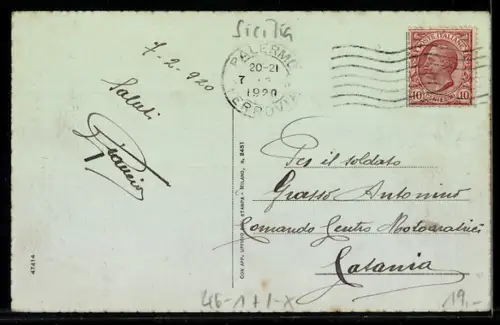 Sicilia
7-2-920
Saluti
PALERMO
20-21
7
1920
FERROVIA
POSTE ITALIANE
10 10
Per il soldato
Grasso Antonino
Comando Centro Motoaratrici
Catania
CON APP. UFFICIO REV. STAMPA - MILANO, N. 2451
47414
46-1+1-X
19,-